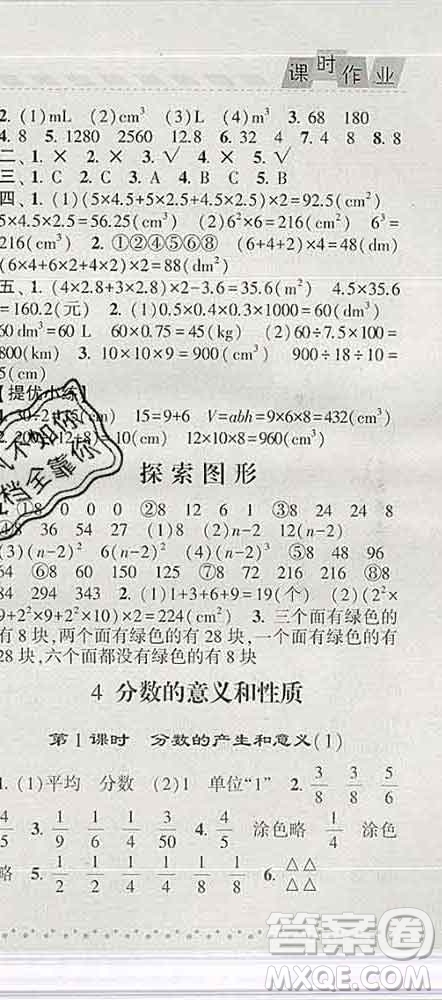 课时作业
2. (1)mL (2)cm³ (3)L (4)m³ 3. 68 180
4. 8 5. 1280 2560 12.8 6. 32 4 7. 4 8. 8
二、1. × 2. × 3. √ 4. × 5. √
三、1. C 2. C 3. A 4. B C 5. B
四、1. (1)(5×4.5+5×2.5+4.5×2.5)×2=92.5(cm²)
5×4.5×2.5=56.25(cm³) (2)6²×6=216(cm²) 6³=
216(cm³) 2. ①②⑤⑥⑧ (6+4+2)×4=48(dm)
(6×4+6×2+4×2)×2=88(dm²)
五、1. (4×2.8+3×2.8)×2-3.6=35.6(m²) 4.5×35.6
=160.2(元) 2. (1)0.5×0.4×0.3×1000=60(dm³)
60dm³=60 L 60×0.75=45(kg) (2)60÷7.5×100=
800(km) 3. 900÷18=50(cm²) 900÷10÷18=
5(cm)
【提优小练】
15=9+6 V=abh=9×6×8=432(cm³)
=10(cm) 12×10×8=960(cm³)
探索图形
①8 0 0 0 ②8 12 6 1 ③8 24 24 8
8 36 54 27 (1)8 (2)(n-2)×12
(3)(n-2)²×6 (4)(n-2)³ ⑤8 48 96
64 ⑥8 60 150 125 ⑦8 72 216 216 ⑧8
84 294 343 2. (1)1+3+6+9=19(个) (2)(2²×
9+2²×9+2²×10)×2=224(cm²) 3. 三个面有绿色的
有 8 块,两个面有绿色的有 28 块,一个面有绿色的有
28 块,六个面都没有绿色的有 8 块
4 分数的意义和性质
第 1 课时 分数的产生和意义(1)
1. (1)平均 分数 (2)1 单位“1” 2. 3/8 3/8 5/6
4/5 3. 1/9 1/9 1/4 3/50 4. 4/5 涂色略 1/4 涂色
略 5. 1/2 1/2 1/4 1/4 1/8 1/8 6. △△△△
答案圈
MXQE.COM